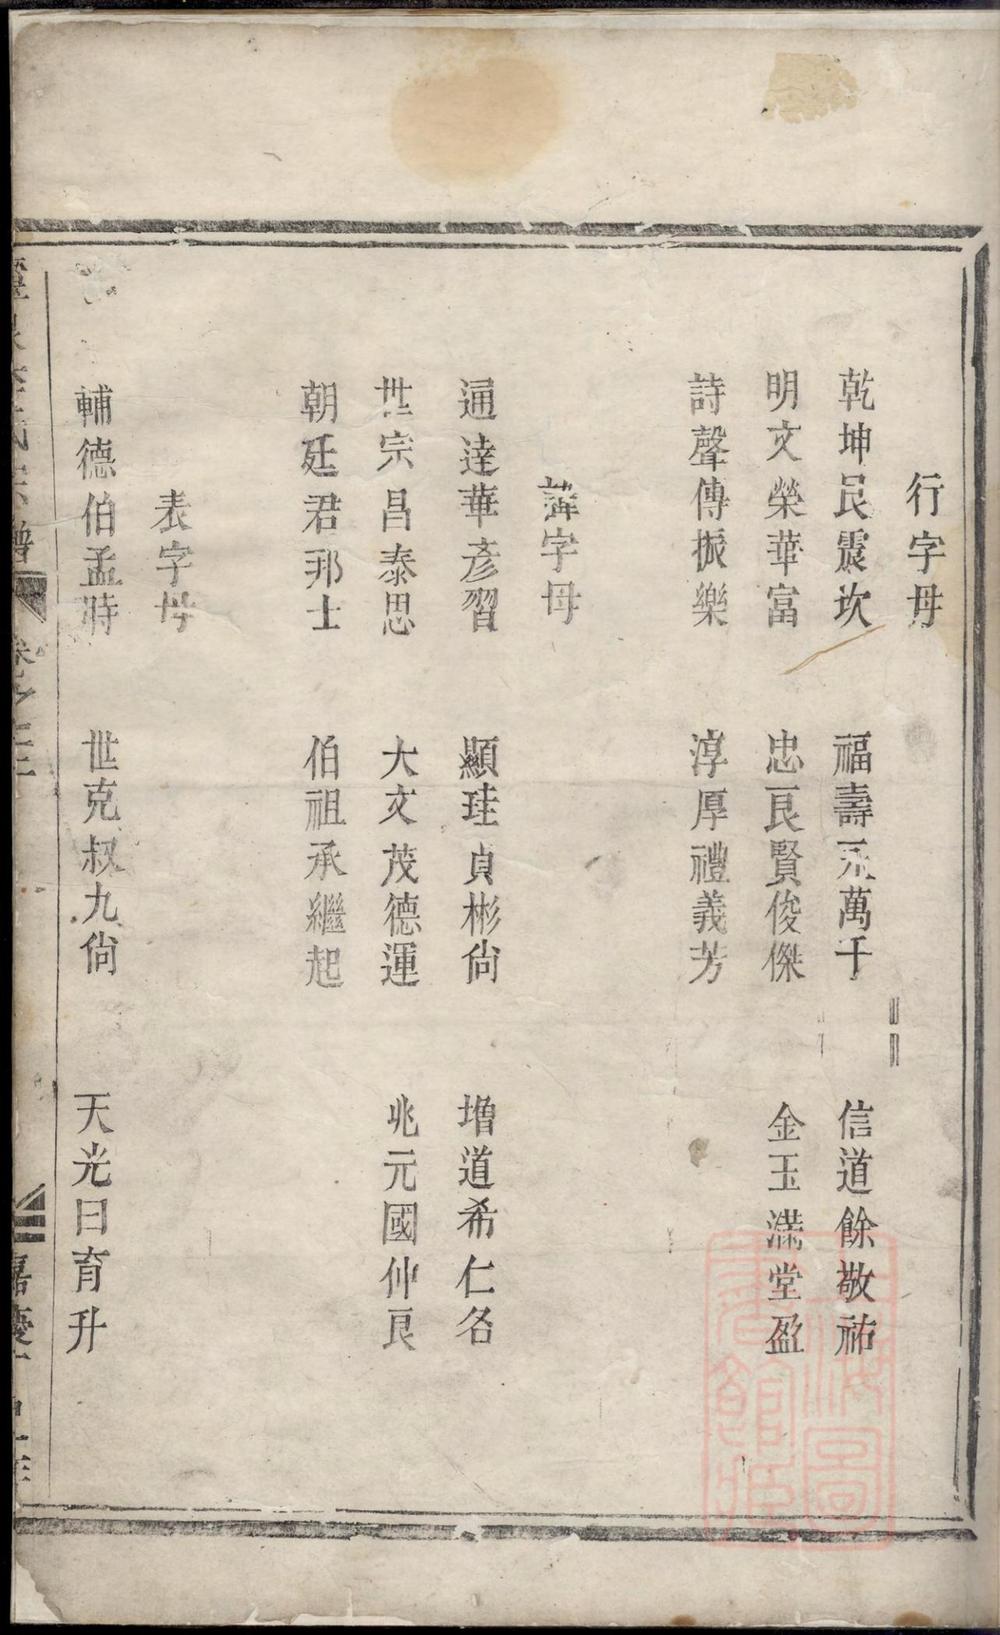 行字母
乾坤艮震坎 福壽永萬千 信道餘敬祐
明文榮華富 忠良賢俊傑 金玉滿堂盈
詩聲傳振樂 淳厚禮義芳
諱字母
通達華彥習 顯珪貞彬尙 增道希仁名
世宗昌泰思 大文茂德運 兆元國仲良
朝廷君邦士 伯祖承繼起
表字母
輔德伯孟時 世克叔九尙 天光日育升
李氏宗譜 卷之 嘉慶